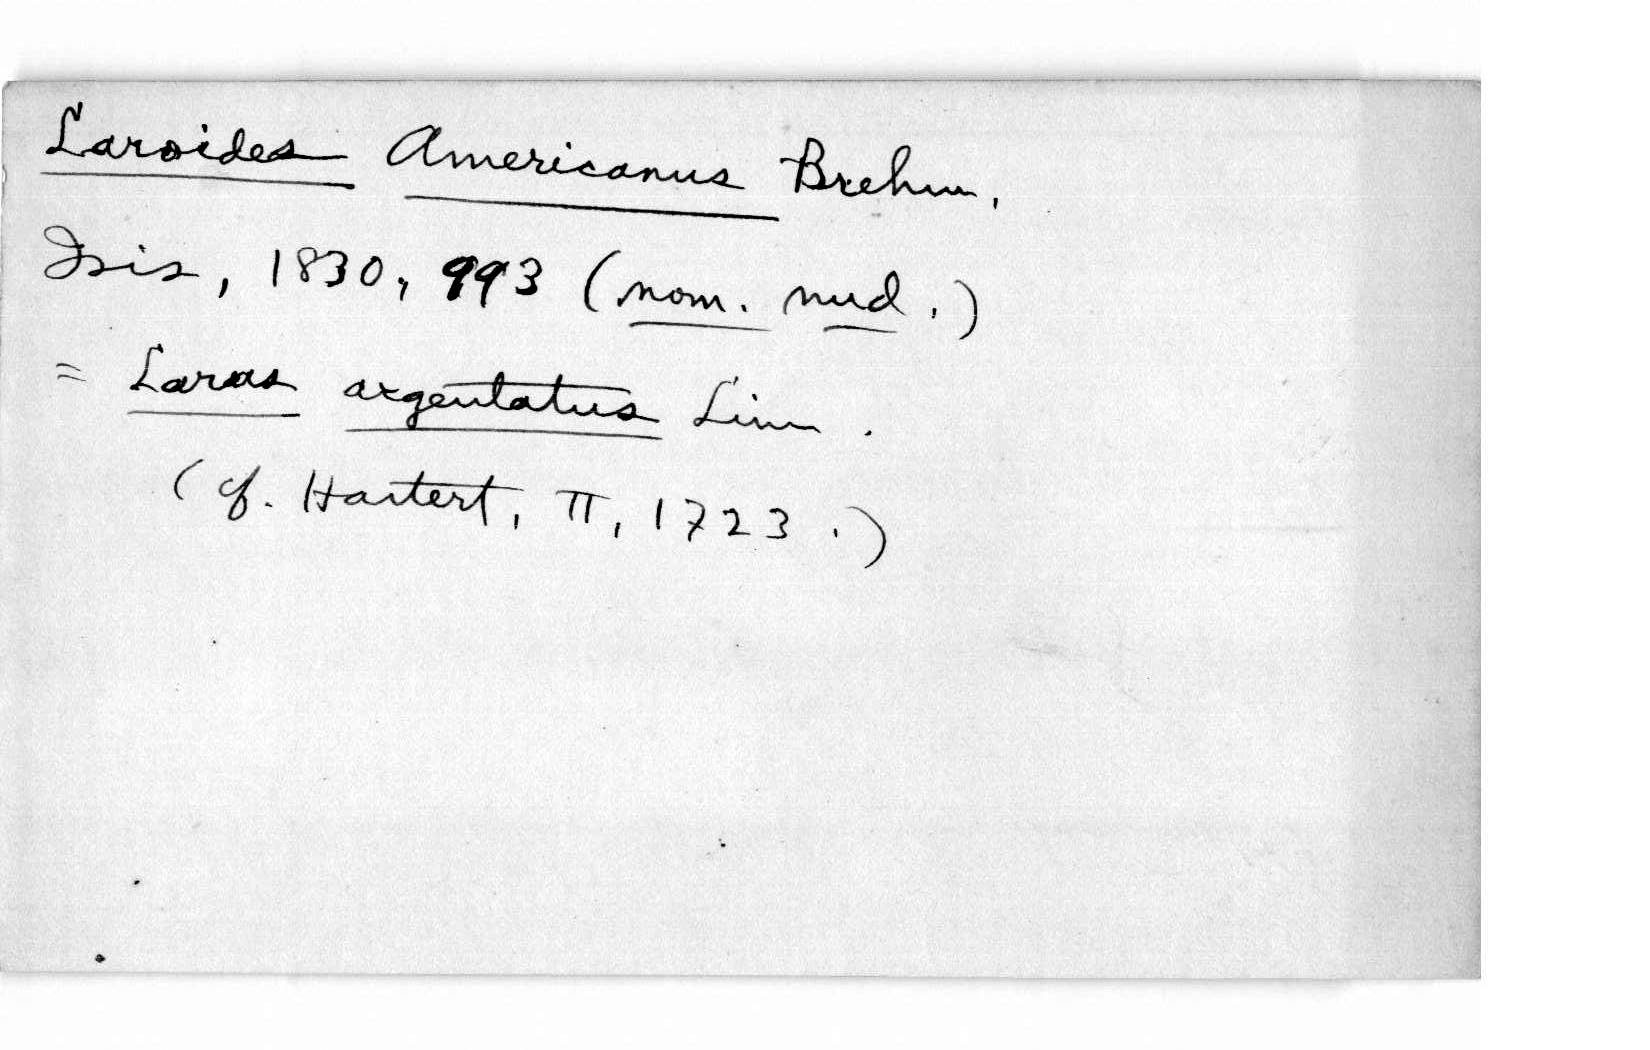 Laroides Americanus Brehm,
Isis, 1830, 993 (nom. nud.)
= Larus argentatus Linn.
(cf. Hartert, II, 1723.)